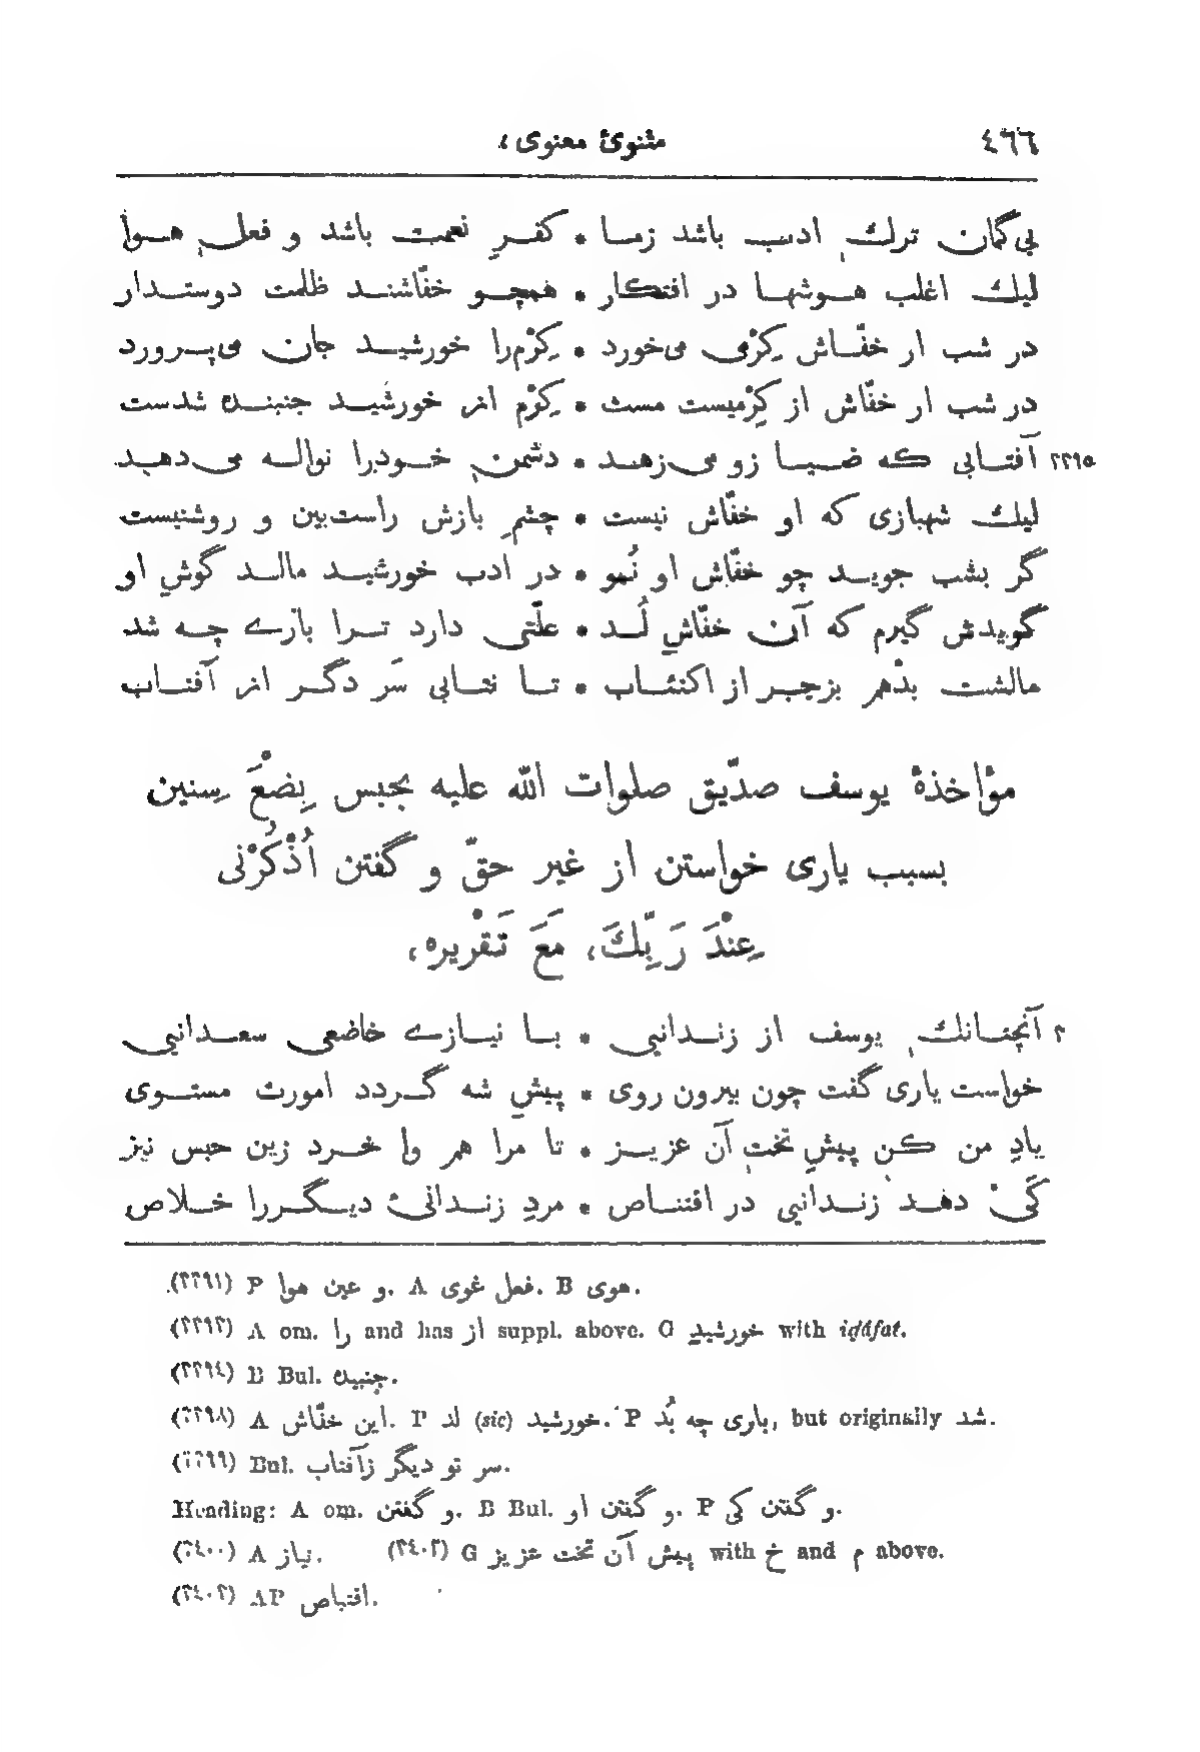 مثنوئ معنوی، ٤٦٦
بی‌گمان ترك ادب باشد زمـا * كفـرِ نعمت باشد و فعلِ هـوا
لیك اغلب هـوشهـا در افتكار * همچـو خفّاشنـد ظلمت دوستـدار
در شب ار خفّـاش كِرْمی می‌خورد * كِرْم‌را خورشیـد جان می‌پـرورد
در شب ار خفّاش از كِرْمیست مست * كِرْم از خورشید جنبنـده شدست
آفتـابی كه ضیـا زو می‌زهـد * دشمنِ خـودرا نوالـه می‌دهـد ٣٣٩٥
لیك شهبازی كه او خفّاش نیست * چشمِ بازش راست‌بین و روشنیست
گر بشب جویـد چو خفّاش او نُمو * در ادب خورشیـد مالـد گوشِ او
گویدش گیرم كه آن خفّاشِ لُـد * علّتی دارد تـرا باری چـه شد
مالشت بدْهم بزجـر از اكتئـاب * تـا نتـابی سَر دگـر از آفتـاب
مؤاخذهٔ یوسف صدّیق صلوات الله علیه بحبس بِضْعَ سِنین
بسبب یاری خواستن از غیر حقّ و گفتن اُذْكُرْنی
عِنْدَ رَبِّكَ، مَعَ تَقْریره،
آنچنـانك یوسف از زنـدانیی * بـا نیـازی خاضعی سعـدانیی ٣
خواست یاری گفت چون بیرون روی * پیشِ شه گـردد امورت مستـوی
یادِ من كـن پیشِ تختِ آن عزیـز * تا مرا هم وا خـرد زین حبس نیز
كَیْ دهـد زنـدانیی در اقتنـاص * مردِ زنـدانئ دیـگـررا خـلاص
(٣٣٩١) P و عین هوا. A فعل غوی. B هوی.
(٣٣٩٣) A om. را and has از suppl. above. G خورشیدِ with iḍāfat.
(٣٣٩٤) B Bul. جنبیده.
(٣٣٩٨) A این خفّاش. P لد (sic) خورشید. P باری چه بُد, but originally شد.
(٣٣٩٩) Bul. سر تو دیگر زآفتاب.
Heading: A om. و گفتن. B Bul. و گفتن او. P و گفتن كی.
(٣٤٠٠) A نیاز. (٣٤٠٢) G پیش آن تخت عزیز with خ and م above.
(٣٤٠٣) AP اقتباص.